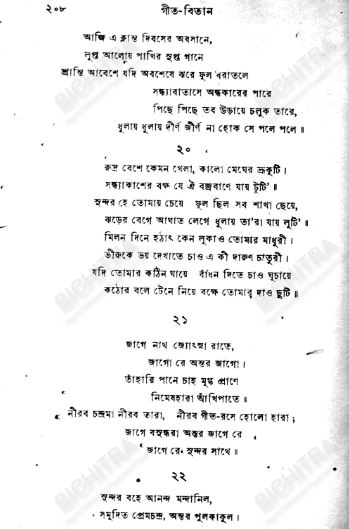 ২০৮ গীত-বিতান
আজি এ ক্লান্ত দিবসের অবসানে,
লুপ্ত আলোয় পাখির সুপ্ত গানে
শ্রান্তি আবেশে যদি অবশেষে ঝরে ফুল ধরাতলে
সন্ধ্যাবাতাসে অন্ধকারের পারে
পিছে পিছে তব উড়ায়ে চলুক তারে,
ধুলায় ধুলায় দীর্ণ জীর্ণ না হোক সে পলে পলে॥
২০
রুদ্র বেশে কেমন খেলা, কালো মেঘের ভ্রূকুটি।
সন্ধ্যাকাশের বক্ষ যে ঐ বজ্রবাণে যায় টুটি'॥
সুন্দর হে তোমায় চেয়ে ফুল ছিল সব শাখা ছেয়ে,
ঝড়ের বেগে আঘাত লেগে ধুলায় তা'রা যায় লুটি'॥
মিলন দিনে হঠাৎ কেন লুকাও তোমার মাধুরী।
ভীরুকে ভয় দেখাতে চাও এ কী দারুণ চাতুরী।
যদি তোমার কঠিন ঘায়ে বাঁধন দিতে চাও ঘুচায়ে
কঠোর বলে টেনে নিয়ে বক্ষে তোমার দাও ছুটি॥
২১
জাগে নাথ জ্যোৎস্না রাতে,
জাগো রে অন্তর জাগো।
তাঁহারি পানে চাহ মুগ্ধ প্রাণে
নিমেষহারা আঁখিপাতে॥
নীরব চন্দ্রমা নীরব তারা, নীরব গীত-রসে হোলো হারা;
জাগে বসুন্ধরা অন্তর জাগে রে
জাগে রে সুন্দর সাথে॥
২২
সুন্দর বহে আনন্দ মন্দানিল,
সমুদিত প্রেমচন্দ্র, অন্তর পুলকাকুল।
BICHITRA